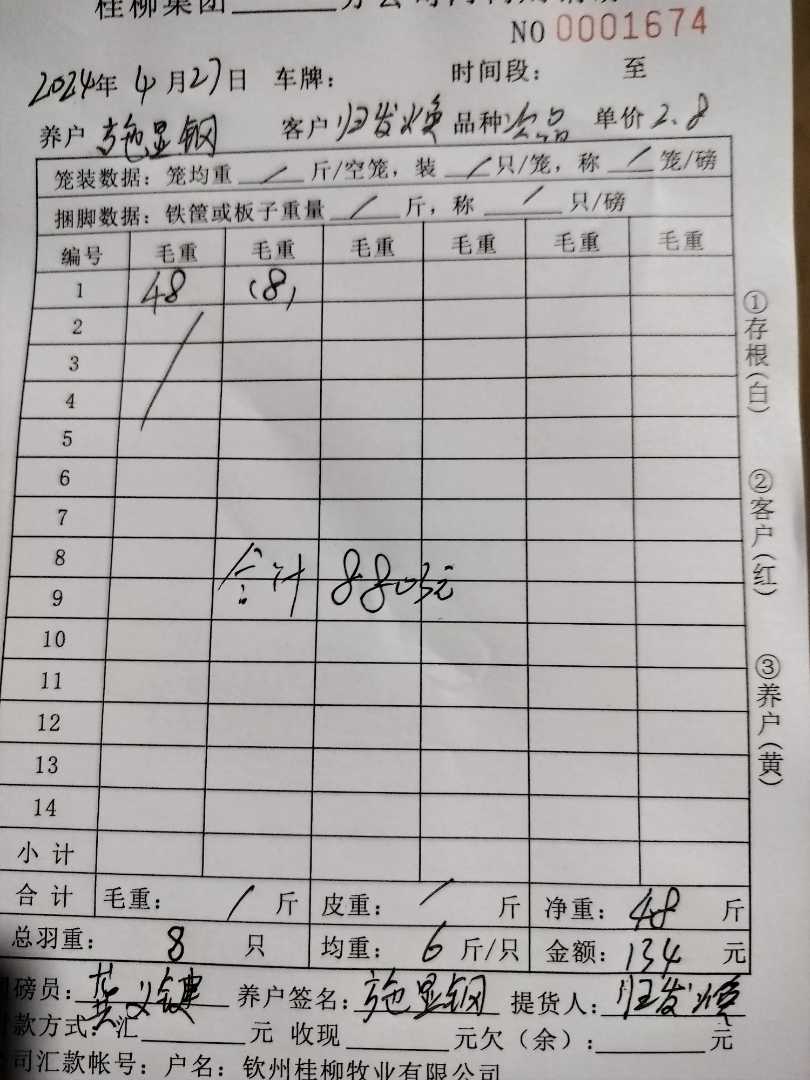 桂柳集团
NO 0001674
2024年 4月27日 车牌: 时间段: 至
养户 施显钢 客户 归发焕 品种 次品 单价 2.8
笼装数据: 笼均重 / 斤/空笼, 装 / 只/笼, 称 / 笼/磅
捆脚数据: 铁筐或板子重量 / 斤, 称 / 只/磅
编号 毛重 毛重 毛重 毛重 毛重 毛重
1 48 (8)
2
3
4
5
6
7
8
合计 8803元
9
10
11
12
13
14
小计
合计 毛重: / 斤 皮重: / 斤 净重: 48 斤
总羽重: 8 只 均重: 6 斤/只 金额: 134 元
磅员: 黄义键 养户签名: 施显钢 提货人: 归发焕
款方式: 汇 元 收现 元欠(余): 元
司汇款帐号: 户名: 钦州桂柳牧业有限公司
①存根(白)
②客户(红)
③养户(黄)